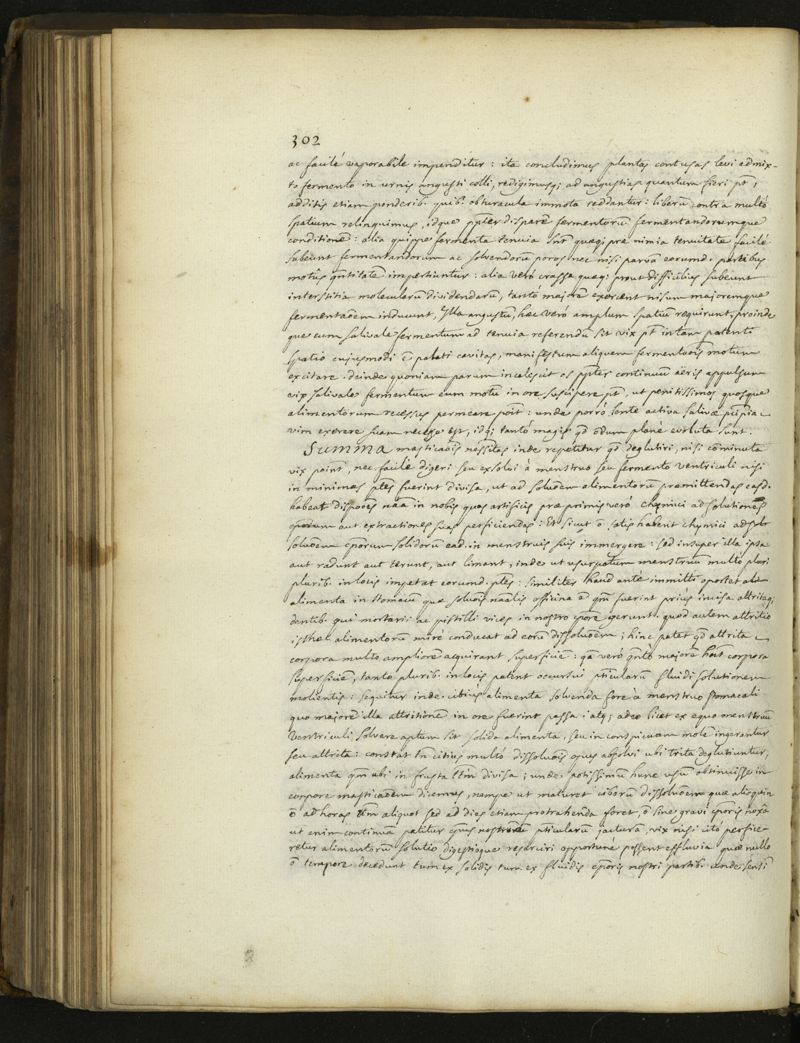 302
ac facilé vaporabile impenditur : ita concludimus plantas contusas levi admix-
to fermento in urnis angusti colli, redigimusq; ad angustias quantum fieri pt,
additis etiam ponderib. quib. obturacula immota reddantur : liberū contra multo
spatium relinquimus, idque ppter disparē fermentorū fermentandorumque
conditionē : alia quippe fermenta tenuia snt quæq; præ nimia tenuitate facilé
subeunt fermentandorum ac solvendorū poros nec nisi parvā eorumd. partibus
motus qntitatē impertiuntur : alia veró crassa quæq; prout difficilius subeunt
interstitia molecularū dividendarū, tantó majorē exercent nisum majoremque
fermentaōem inducunt, Illa angustū, hæc veró amplum spatiū requirunt, proinde
que cum salivale fermentum ad tenuia referendū sit vix pt in tam patenti
spatio cujusmodi ē palati cavitas, manifestum aliquem fermentaōis motum
excitare. deinde quoniam parum incalescit os ppter continuum aeris appulsum
vix salivale fermentum eum motū in ore suscipere pt, ut penitissimos quosque
alimentorum recessus permeare poit : unde porró lentē activa salivæ pcipia
vim exerere suam necesse est, idq; tantó magis qd odum planè evoluta sunt.
Summa masticaōis necessitas inde repetitur qd deglutiri, nisi cōminuta
vix point, nec facile digeri seu exsolvi à menstruo seu fermento ventriculi nisi
in minimas ptes fuerint divisa, ut ad soluōem alimentorū præmittendas easd.
habeat dispoōes naa in nobis quas artificis præ primis veró chymici ad solutiones
cporum aut extractiones suas perficiendas : Et sicut ō satis habent chymici ad
soluōem cporum solidorū ead. in menstruis suis immergere : sed insuper illa ipsa
aut radunt aut terunt, aut limant, inde ut usurpatum menstruū multo pluri
pluribus in locis impetat eorumd. ptes : similiter haud ante immitti oportet
alimenta in stomacū quæ soluōis naalis officina ē qm fuerint prius incisa attritaq;
dentib. qui mortarii ac pistilli vices in nostro cpore gerunt. quod autem attritio
isthæc alimentorū mirè conducat ad eorū dissoluōem ; hinc patet qd attrita
corpora multo ampliorē acquirant superficiē : qa veró qnto majorē hnt corpora
superficiē, tanto pluribus in locis patent occursui pticularū fluidi solutionem
molientis : sequitur inde citius alimenta solvenda fore à menstruo stomacali
quo majorē illa attritionē in ore fuerint passa : atq; adeo licet ex æquo menstruū
ventriculi solvere aptum sit solida alimenta, seu in conspicuam molē ingerantur
seu attrita : constat tn citius multo dissoluōis opus absolvi ubi trita deglutiuntur,
alimenta qm ubi in frusta ttm divisa ; unde potissimū hunc usū obtinuisse in
corpore masticaōem dicemus, nempe ut maturet ciborū dissoluōem quæ alioquin
ō ad horas ttm aliquot sed ad dies etiam protrahenda foret, ō sine gravi cporis noxâ
ut enim continuā patitur cpus nostrum pticularū jacturā, vix nisi citó perfice-
retur alimentorū solutio digestioque resarciri opportunè possent effluvia quæ nullo
ō tempore decedunt tum ex solidis tum ex fluidis cporis nostri partib.